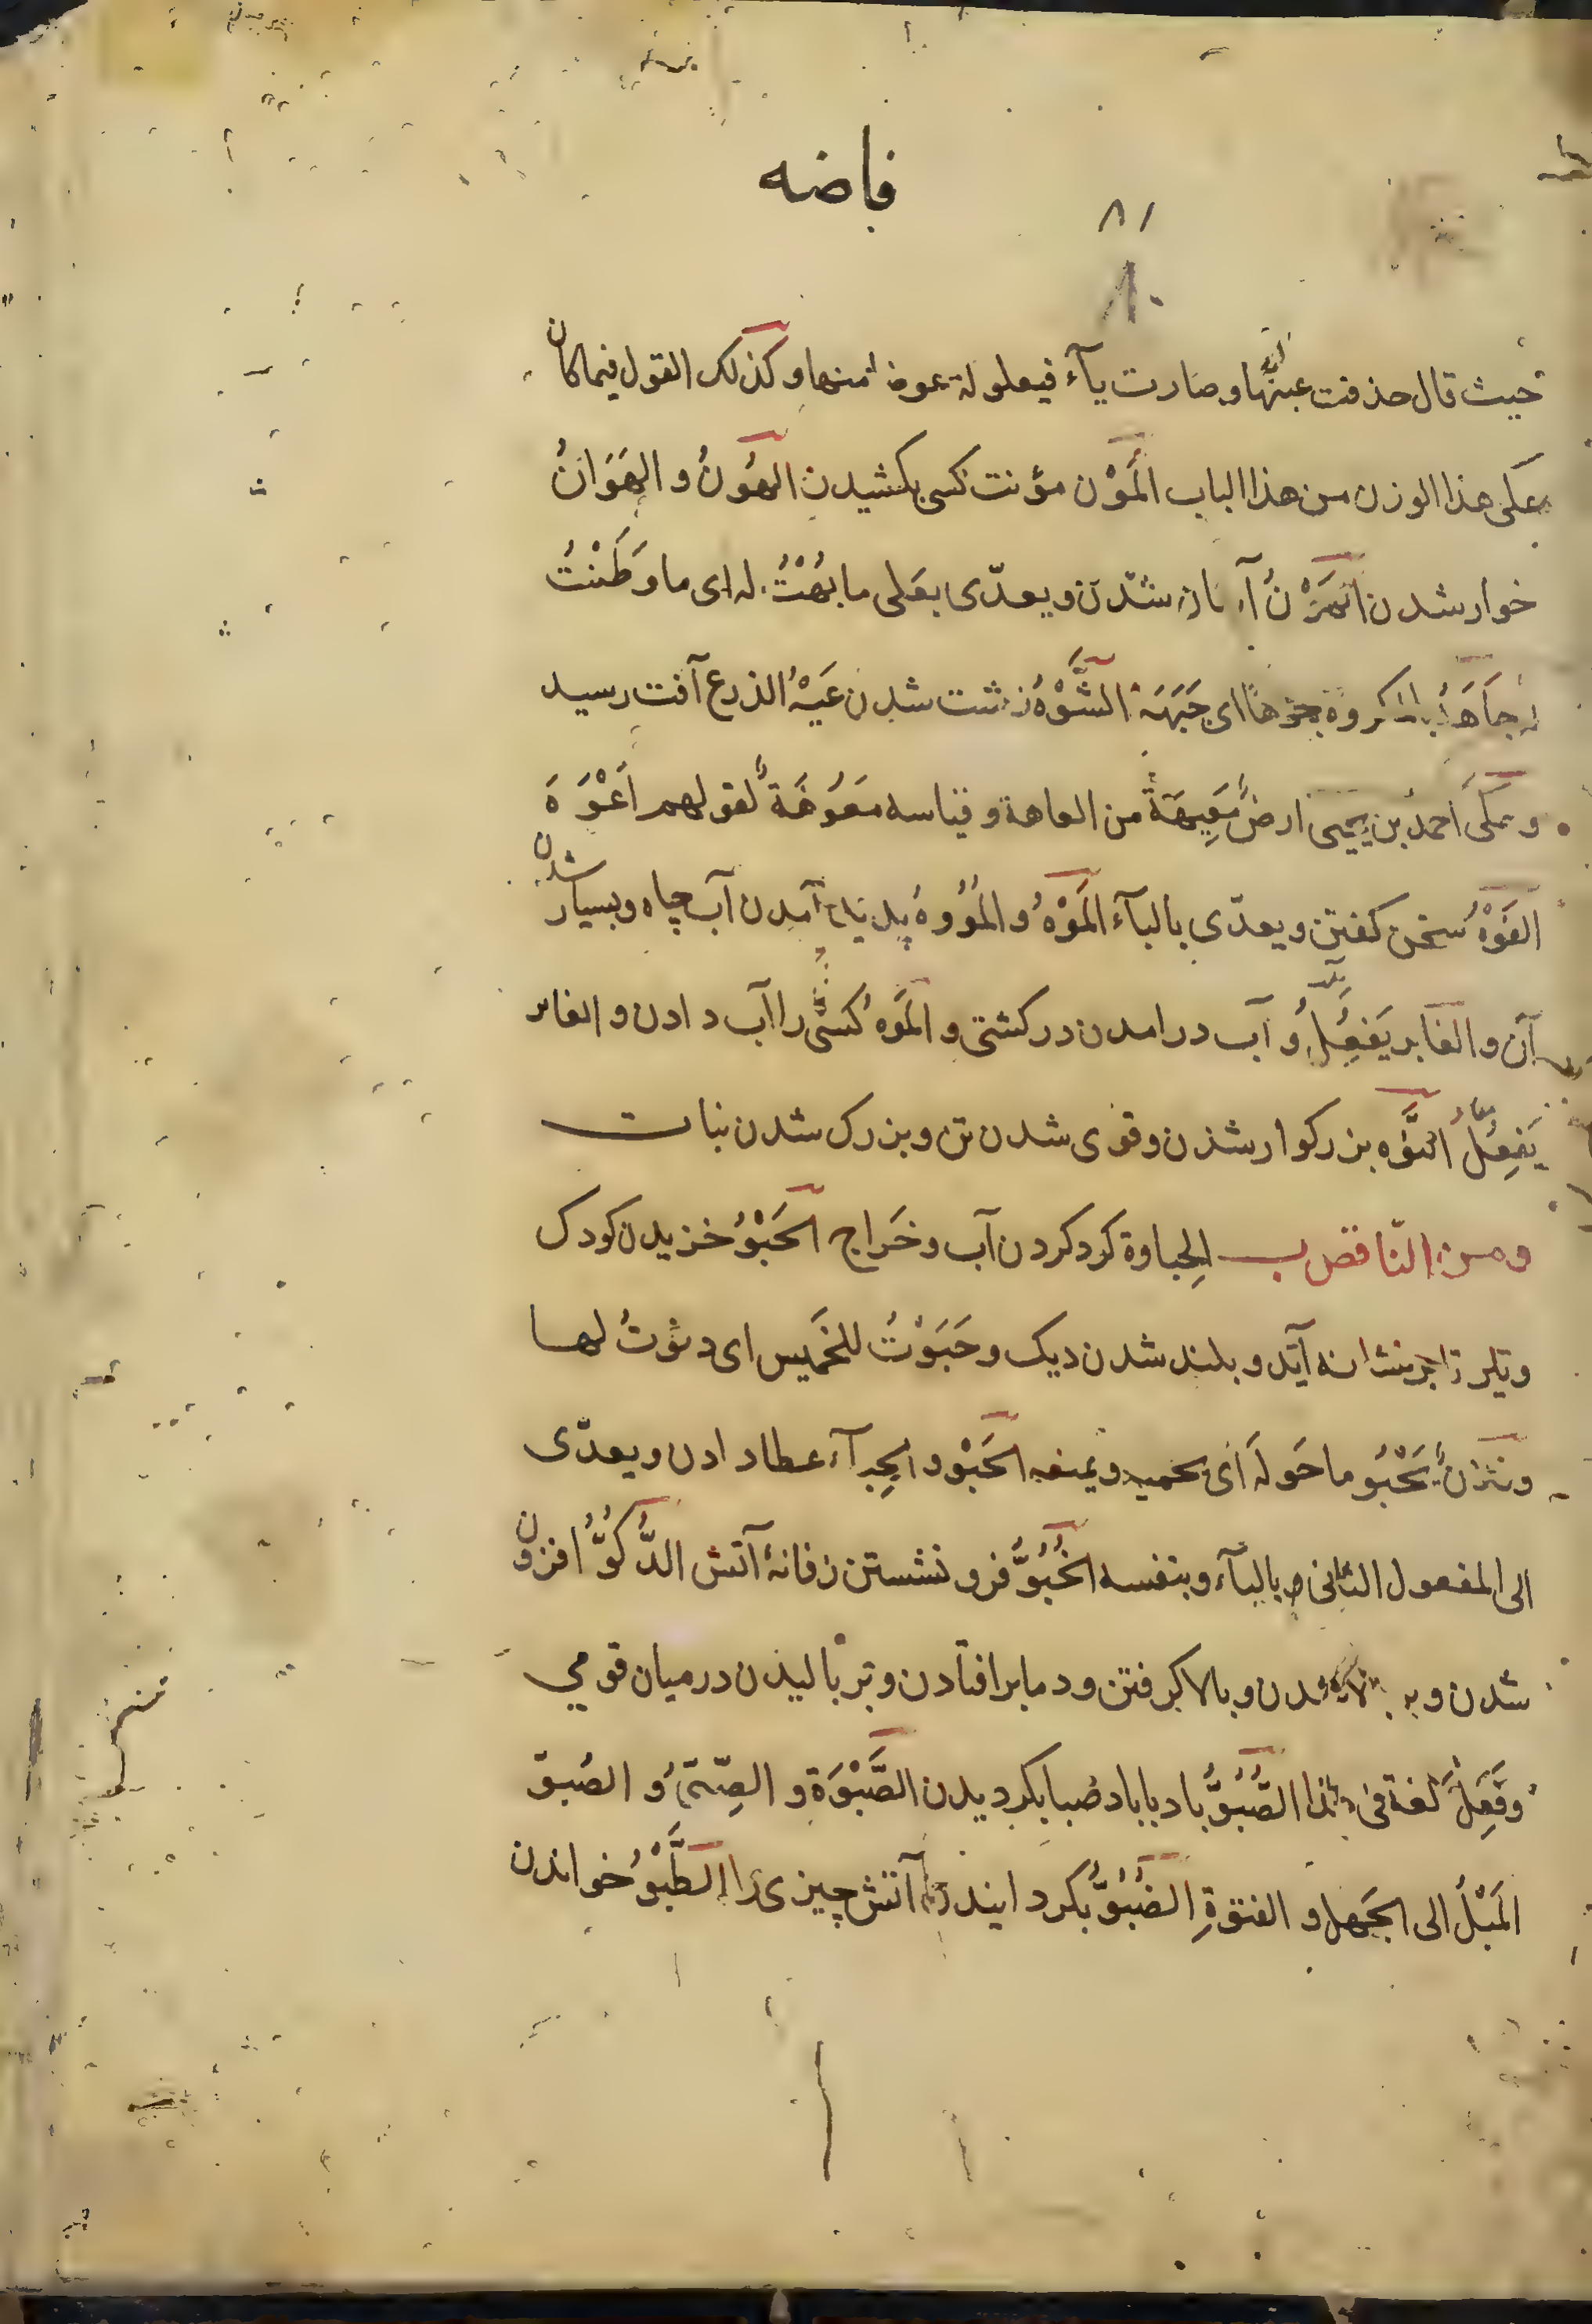 فاضه
٨١
٨٠
حيث قال حذفت عينها وصارت يآء فيعلولة عوضا منها وكذلك القول فيما كان
على هذا الوزن من هذا الباب المَوْن مؤنت كسى بكشيدن الهُونُ و الهَوَانُ
خوار شدن الهَوْنُ آسان شدن ويعدّى بعلى ما بُهْتُ له اى ما فَطَنْتُ
جَاهَهُ بالمكروه جوهًا اى جَبَهَهُ الشَّوْهُ زشت شدن عَيْهُ الذرع آفت رسيد
و حكى احمد بن يحيى ارضٌ مَعِيهَةٌ من العاهة و قياسه مَعُوهَةٌ لقولهم اَعْوَهَ
الفَوْهُ سخن كفتن ويعدّى بالبآء المَوْهُ و المُؤُوهُ پديد آمدن آب چاه وبسيار شدن
آن و الغابر يَفعِلُ و آب درامدن در كشتى و المَوه كسى را آب دادن و الغابر
يَفعِلُ النَّوْه بزركوار شدن و قوى شدن تن و بزرك شدن نبات
ومن النّاقص ب الجِباوة كرد كردن آب و خَراج الحَبْوُ خزيدن كودك
وتير تا بر نشانه آيد و بلند شدن ديک و حَبَوْتُ للخَمْسِين اى دَنَوْتُ لها
يَحْبُو ما حَولَه اَى يحميه و يمنعه الحَبْو و الحِبآء عطا دادن ويعدّى
الى المفعول الثانى بالبآء وبنفسه الخُبُوُّ فرو نشستن زفانهٔ آتش الرُّبُوُّ افزون
شدن و بالا كرفتن و دما برافتادن و بر باليدن در ميان قومي
و فَعِلَ لغة فى هذا الصُّبُوُّ باد با باد صبا بكرديدن الصَّبْوَة و الصُبوّ
المَيْلُ الى الجَهل و الفتوّةِ الضَّبْوُ بكردانيدن آتش چيزى را الطَّبْوُ خواندن